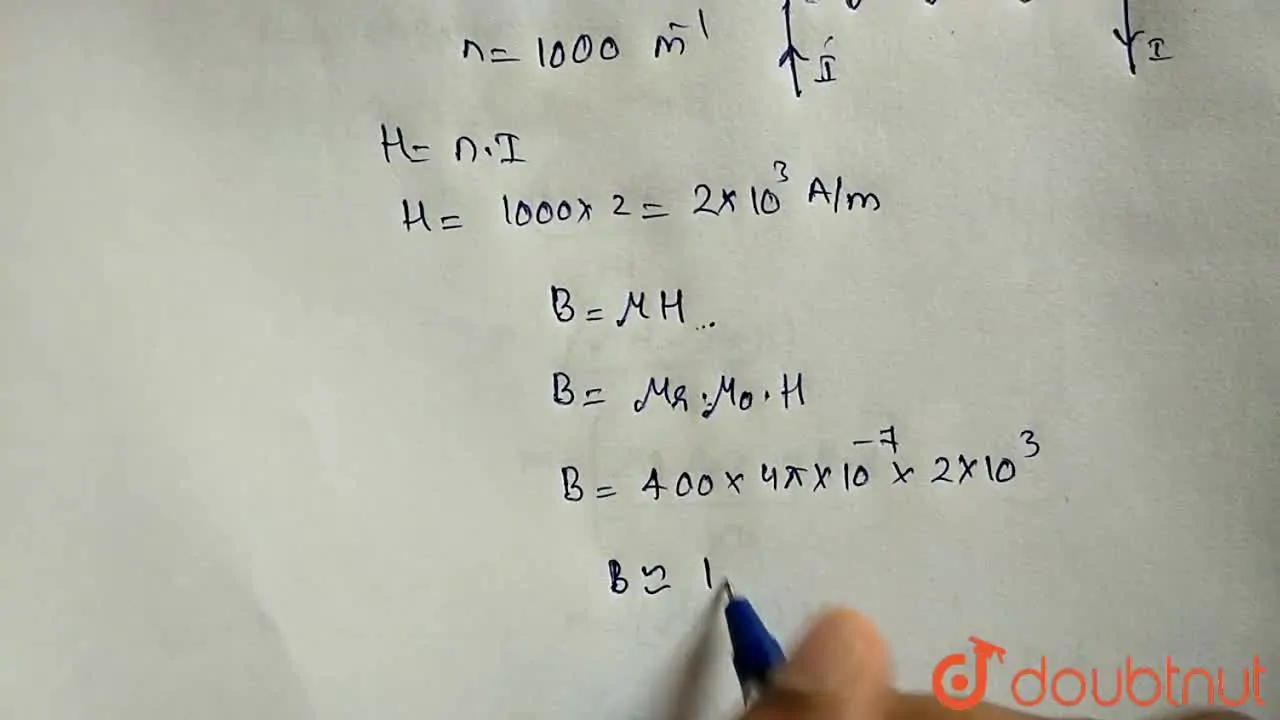 n = 1000 m⁻¹
I
I
H = n.I
H = 1000 × 2 = 2 × 10³ A/m
B = μH...
B = μr.μ0.H
B = 400 × 4π × 10⁻⁷ × 2 × 10³
B ≃ 1
doubtnut